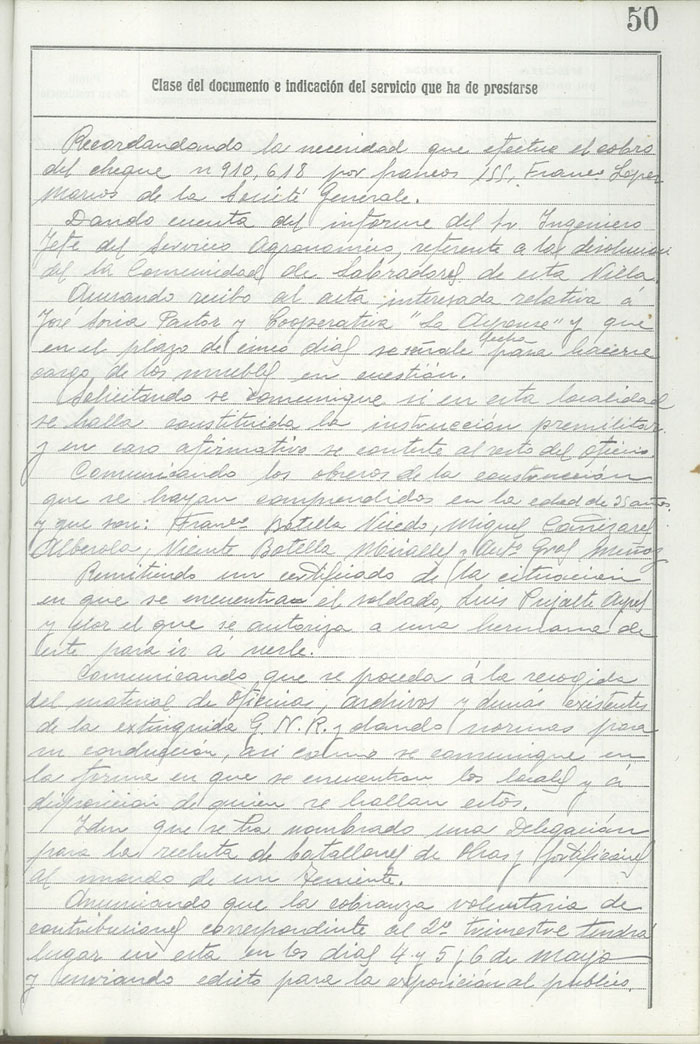 50
Clase del documento e indicación del servicio que ha de prestarse
Recordandando la necesidad que efectue el cobro
del cheque nº 910,618 por francos 155, Franco Lopez
Marios de la Société Generale.
Dando cuenta del informe del Sr. Ingeniero
Jefe del Servicio Agronomico, referente a la disolucion
de la Comunidad de Labradores de esta Villa.
Acusando recibo al acta interesada relativa á
José Soria Pastor y Cooperativa "La Aspense" y que
en el plazo de cinco dias se señale fecha para hacerse
cargo de los muebles en cuestión.
Solicitando se comunique si en esta localidad
se halla constituida la instrucción premilitar
y en caso afirmativo se conteste al resto del oficio.
Comunicando los obreros de la construcción
que se hayan comprendidos en la edad de 35 años
y que son: Franco Botella Vicedo, Miguel Cañizares
Alberola, Vicente Botella Miralles y Anto Gras Muñoz
Remitiendo un certificado de la situacion
en que se encuentra el soldado, Luis Pujalte Ayes
y por el que se autoriza a una hermana de
este para ir á verle.
Comunicando que se proceda á la recogida
del material de oficina, archivos y demás existentes
de la extinguida G. N. R. y dando normas para
su conduccion, asi como se comunique en
la forma en que se encuentran los locales y á
disposicion de quien se hallan estos.
Idem que se ha nombrado una Delegacion
para la recluta de batallones de Obras y fortificaciones
al mando de un teniente.
Anunciando que la cobranza voluntaria de
contribuciones correspondiente al 2º trimestre tendrá
lugar en esta en los dias 4 y 5 y 6 de mayo
y enviando edicto para la exposición al publico.